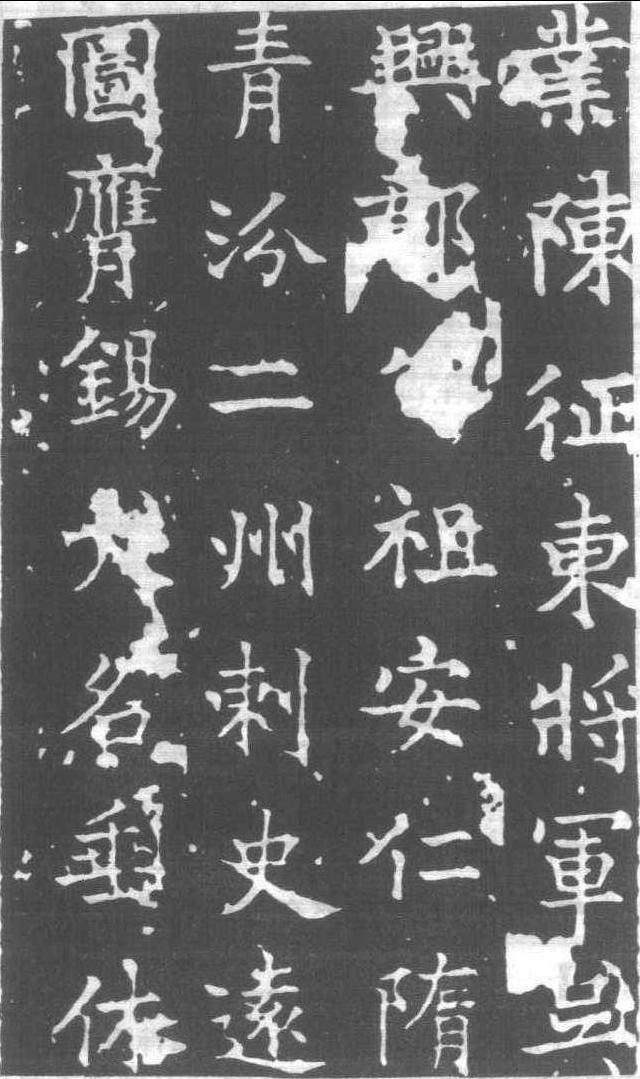 業陳征東將軍
興郡祖安仁隋
青汾二州刺史遠
圖膺錫名垂休